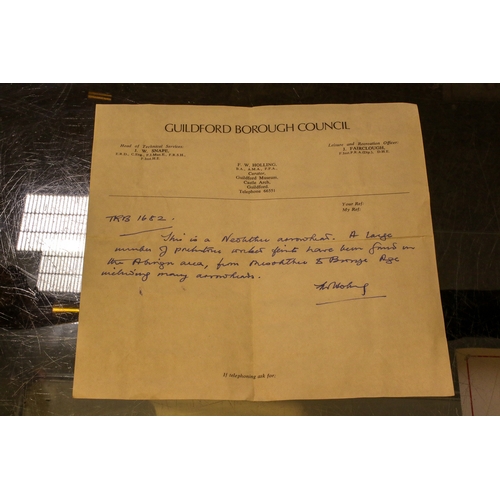 GUILDFORD BOROUGH COUNCIL
Head of Technical Services:
J. W. SNAPE,
Leisure and Recreation Officer:
J. FAIRCLOUGH,
F. W. HOLLING,
B.A., A.M.A., F.S.A.
Curator,
Guildford Museum,
Castle Arch,
Guildford
Telephone 66551
Your Ref:
My Ref:
TRB 1652.
This is a Neolithic arrowhead. A large
number of prehistoric worked flints have been found in
the Abinger area, from Mesolithic to Bronze Age
including many arrowheads.
If telephoning ask for: